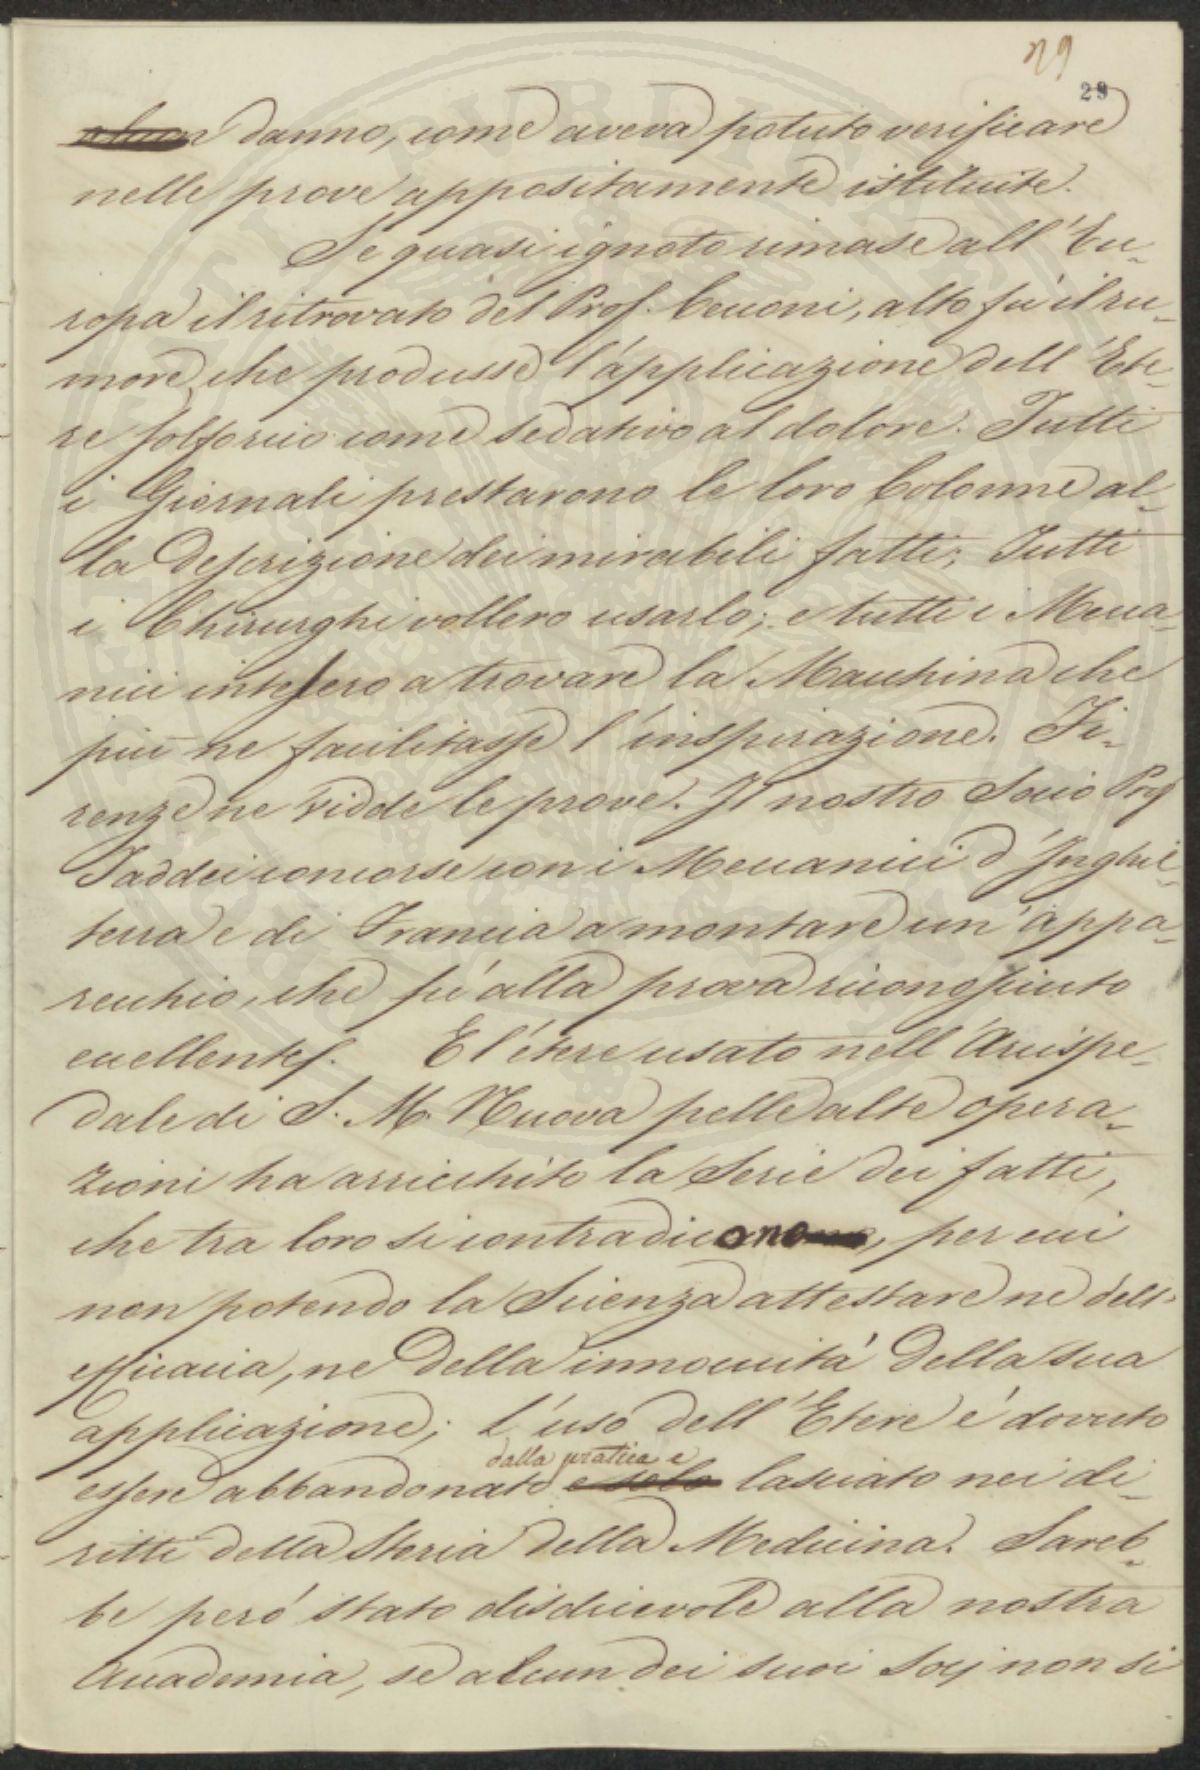 29
29
danno, come aveva potuto verificare
nelle prove appositamente istituite.
Se quasi ignoto rimase all'Eu-
ropa il ritrovato del Prof. Ceccon͏i, alto fù il ru-
more che produsse l'applicazione dell'Ete-
re solforico come sedativo al dolore. Tutti
i Giornali prestarono le loro Colonne al-
la descrizione dei mirabili fatti; Tutti
i Chirurghi vollero usarlo; e tutti i Mecca-
nici intesero a trovare la Macchina che
più ne facilitasse l'inspirazione. Fi-
renze ne vidde le prove. Il nostro Socio Prof
Taddei concorse con i Meccanici d'Inghil-
terra e di Francia a montare un'appa-
recchio, che fù alla prova riconosciuto
eccellente. E l'étere usato nell'Arcispe-
dale di S. M. Nuova pelle alte opera-
zioni ha arricchito la Serie dei fatti,
che tra loro si contradicono, per cui
non potendo la Scienza attestare nè dell'
efficacia, ne della innocuità della sua
applicazione; l'uso dell'Etere é dovuto
dalla pratica e
essere abbandonato e solo lasciato nei di-
ritti della Storia della Medicina. Sareb-
be però stato disdicevole alla nostra
Accademia, se alcun dei suoi Socj non si